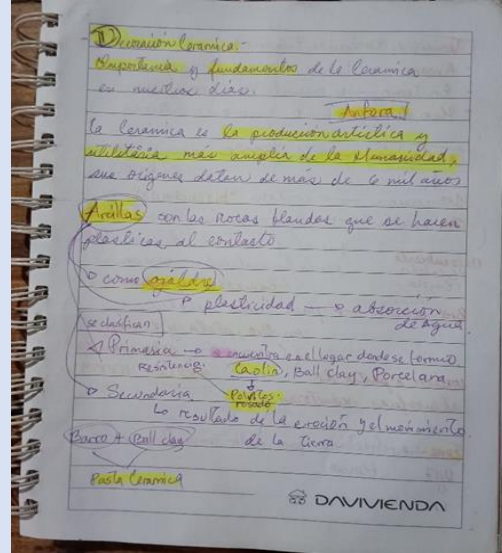 Decoración Ceramica.-
Importancia y fundamentos de la Ceramica
en nuestros días.
Anfora
la Ceramica es la produción artística y
utilitária más amplia de la Humanidad,
sus orígenes datan de más de 6 mil años
Arcillas son las rocas blandas que se hacen
plasticas al contacto
como ojaldre
plasticidad → absorción
de Agua.
se clasifican
Primaria → encuentra en el lugar donde se formó
Caolin, Ball clay, Porcelana
Secundaria
rosado
resultado de la eroción y el movimiento
de la tierra
Barro + Ball clay
Pasta Ceramica
DAVIVIENDA